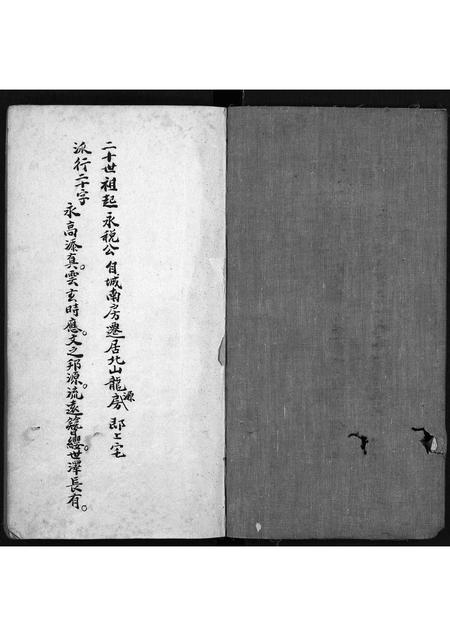 二十世祖起永税公自城南房遷居北山龍源戲即上宅
派行二十字
永高添真。雲玄時應。文之邦源。流遠簪纓。世澤長有。